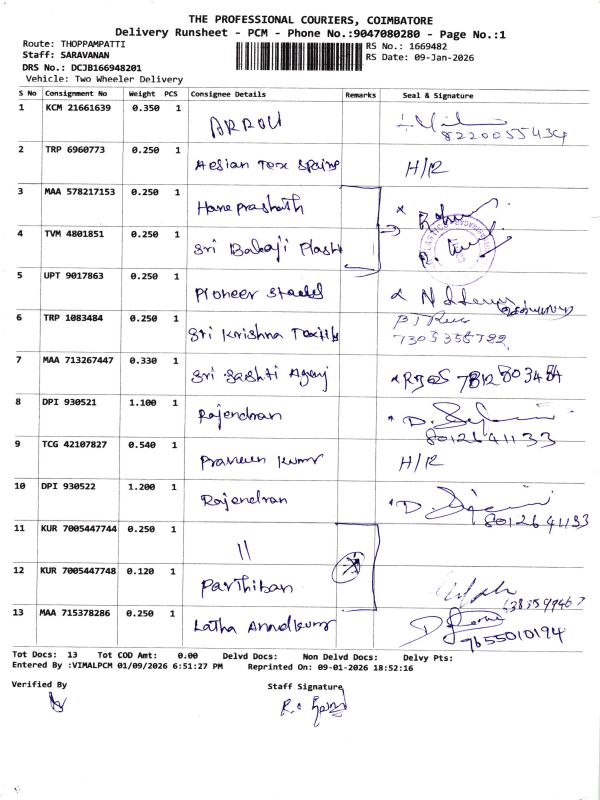 THE PROFESSIONAL COURIERS, COIMBATORE
Delivery Runsheet - PCM - Phone No.:9047080280 - Page No.:1
Route: THOPPAMPATTI RS No.: 1669482
Staff: SARAVANAN RS Date: 09-Jan-2026
DRS No.: DCJB166948201
Vehicle: Two Wheeler Delivery
S No Consignment No Weight PCS Consignee Details Remarks Seal & Signature
1 KCM 21661639 0.350 1 ARROW
8220055434
2 TRP 6960773 0.250 1 Aesian Tex Spining H/R
3 MAA 578217153 0.250 1 Hareprashath
4 TVM 4801851 0.250 1 Sri Balaji Plasti
5 UPT 9017863 0.250 1 Pioneer
6 TRP 1083484 0.250 1 Sri Krishna Textile
7305355782
7 MAA 713267447 0.330 1 Sri Sashti Agenj 7812803484
8 DPI 930521 1.100 1 Rajendran D.
8012641133
9 TCG 42107827 0.540 1 Praveen Kumar H/R
10 DPI 930522 1.200 1 Rajendran D.
8012641133
11 KUR 7005447744 0.250 1 11
12 KUR 7005447748 0.120 1 Parthiban
13 MAA 715378286 0.250 1 Latha
7655010194
Tot Docs: 13 Tot COD Amt: 0.00 Delvd Docs: Non Delvd Docs: Delvy Pts:
Entered By :VIMALPCM 01/09/2026 6:51:27 PM Reprinted On: 09-01-2026 18:52:16
Verified By Staff Signature